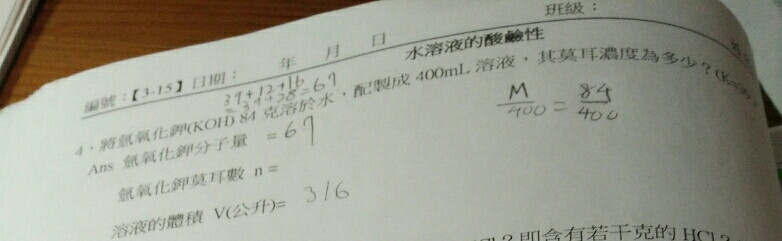 班級：
編號：【3-15】日期： 年 月 日 水溶液的酸鹼性
39+12+16
=39+28=67
4．將氫氧化鉀(KOH) 84 克溶於水，配製成 400mL 溶液，其莫耳濃度為多少？(K=39
Ans 氫氧化鉀分子量 =67
M/400 = 84/400
氫氧化鉀莫耳數 n =
溶液的體積 V(公升)= 316
即含有若干克的 HCl